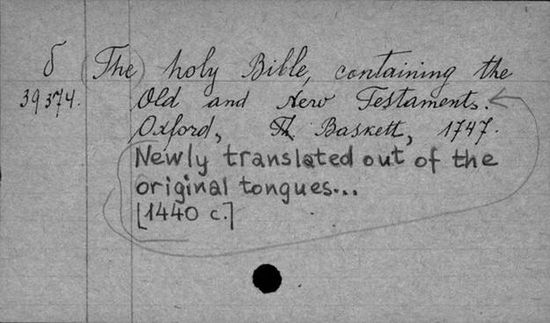 б (The) holy Bible, containing the
39374. Old and New Testaments.
Oxford, Th Baskett, 1747.
Newly translated out of the
original tongues...
[1440 c.]